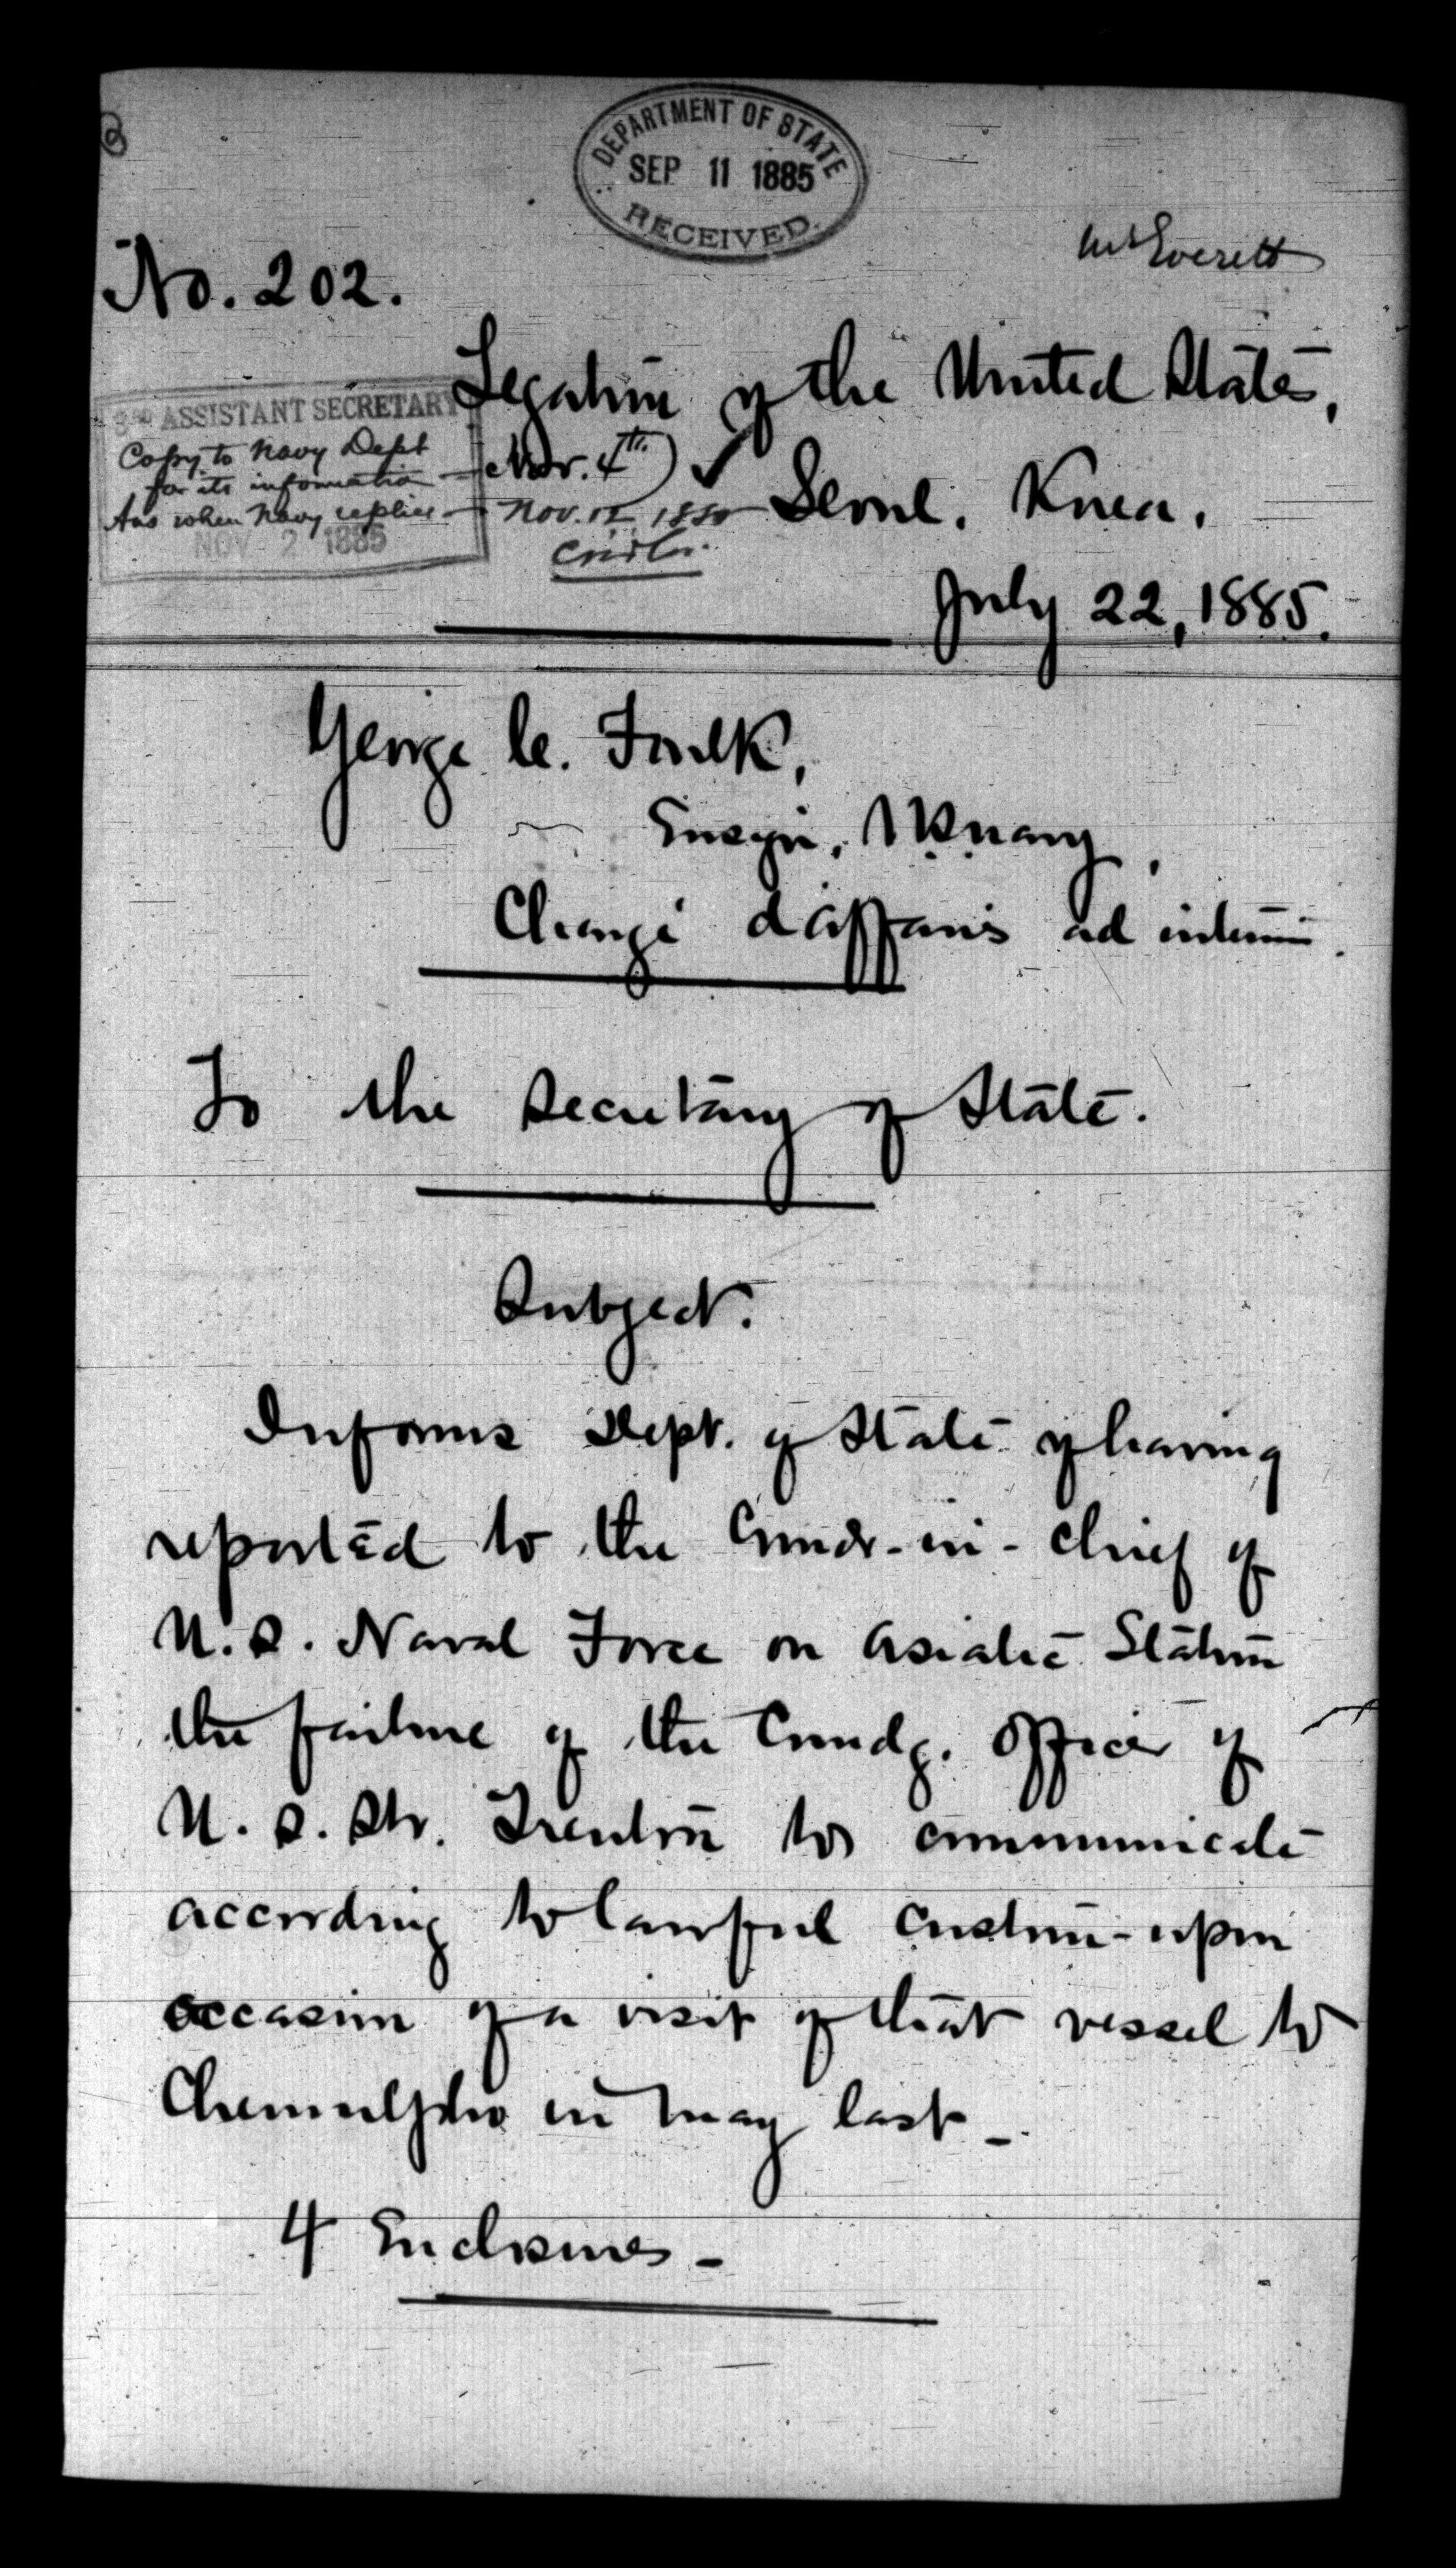 DEPARTMENT OF STATE
SEP 11 1885
RECEIVED.
Mr Everett
No. 202.
Legation of the United States,
3RD ASSISTANT SECRETARY
Copy to Navy Dept
for its information — Nov. 4th)
Ans when Navy replies — Nov. 12 1885
NOV 2 1885
Seoul, Korea,
July 22, 1885.
George C. Foulk,
Ensign, U.S. Navy,
Chargé d'Affaires ad interim.
To the Secretary of State.
Subject.
Informs Dept. of State of having
reported to the Comdr-in-Chief of
U.S. Naval Force on Asiatic Station
the failure of the Comdg. Officer of
U.S. Str. Trenton to communicate
according to lawful custom-upon
occasion of a visit of that vessel to
Chemulpho in May last_
4 Enclosures-